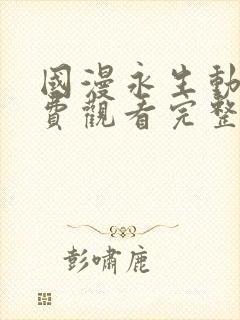 國漫永生動
費觀看完整
彭嘯鹿